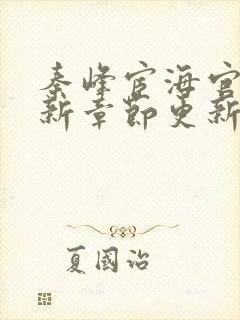 秦峰宦海官
新章節更新
夏國治